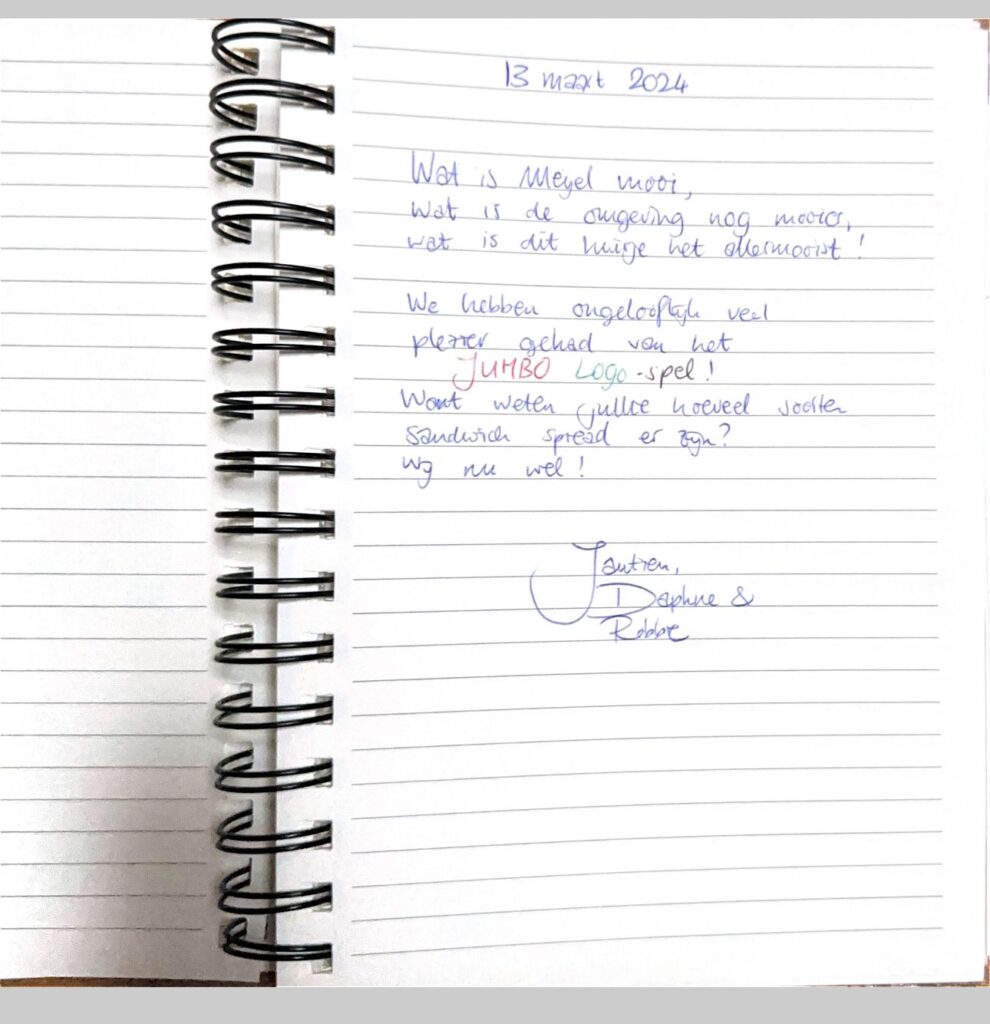 13 maart 2024
Wat is Meyel mooi,
wat is de omgeving nog mooier,
wat is dit huisje het allermooist!
We hebben ongelooflijk veel
plezier gehad van het
JUMBO LOGO-spel!
Want weten jullie hoeveel soorten
sandwich spread er zijn?
Wij nu wel!
Jantien,
Daphne &
Robbe